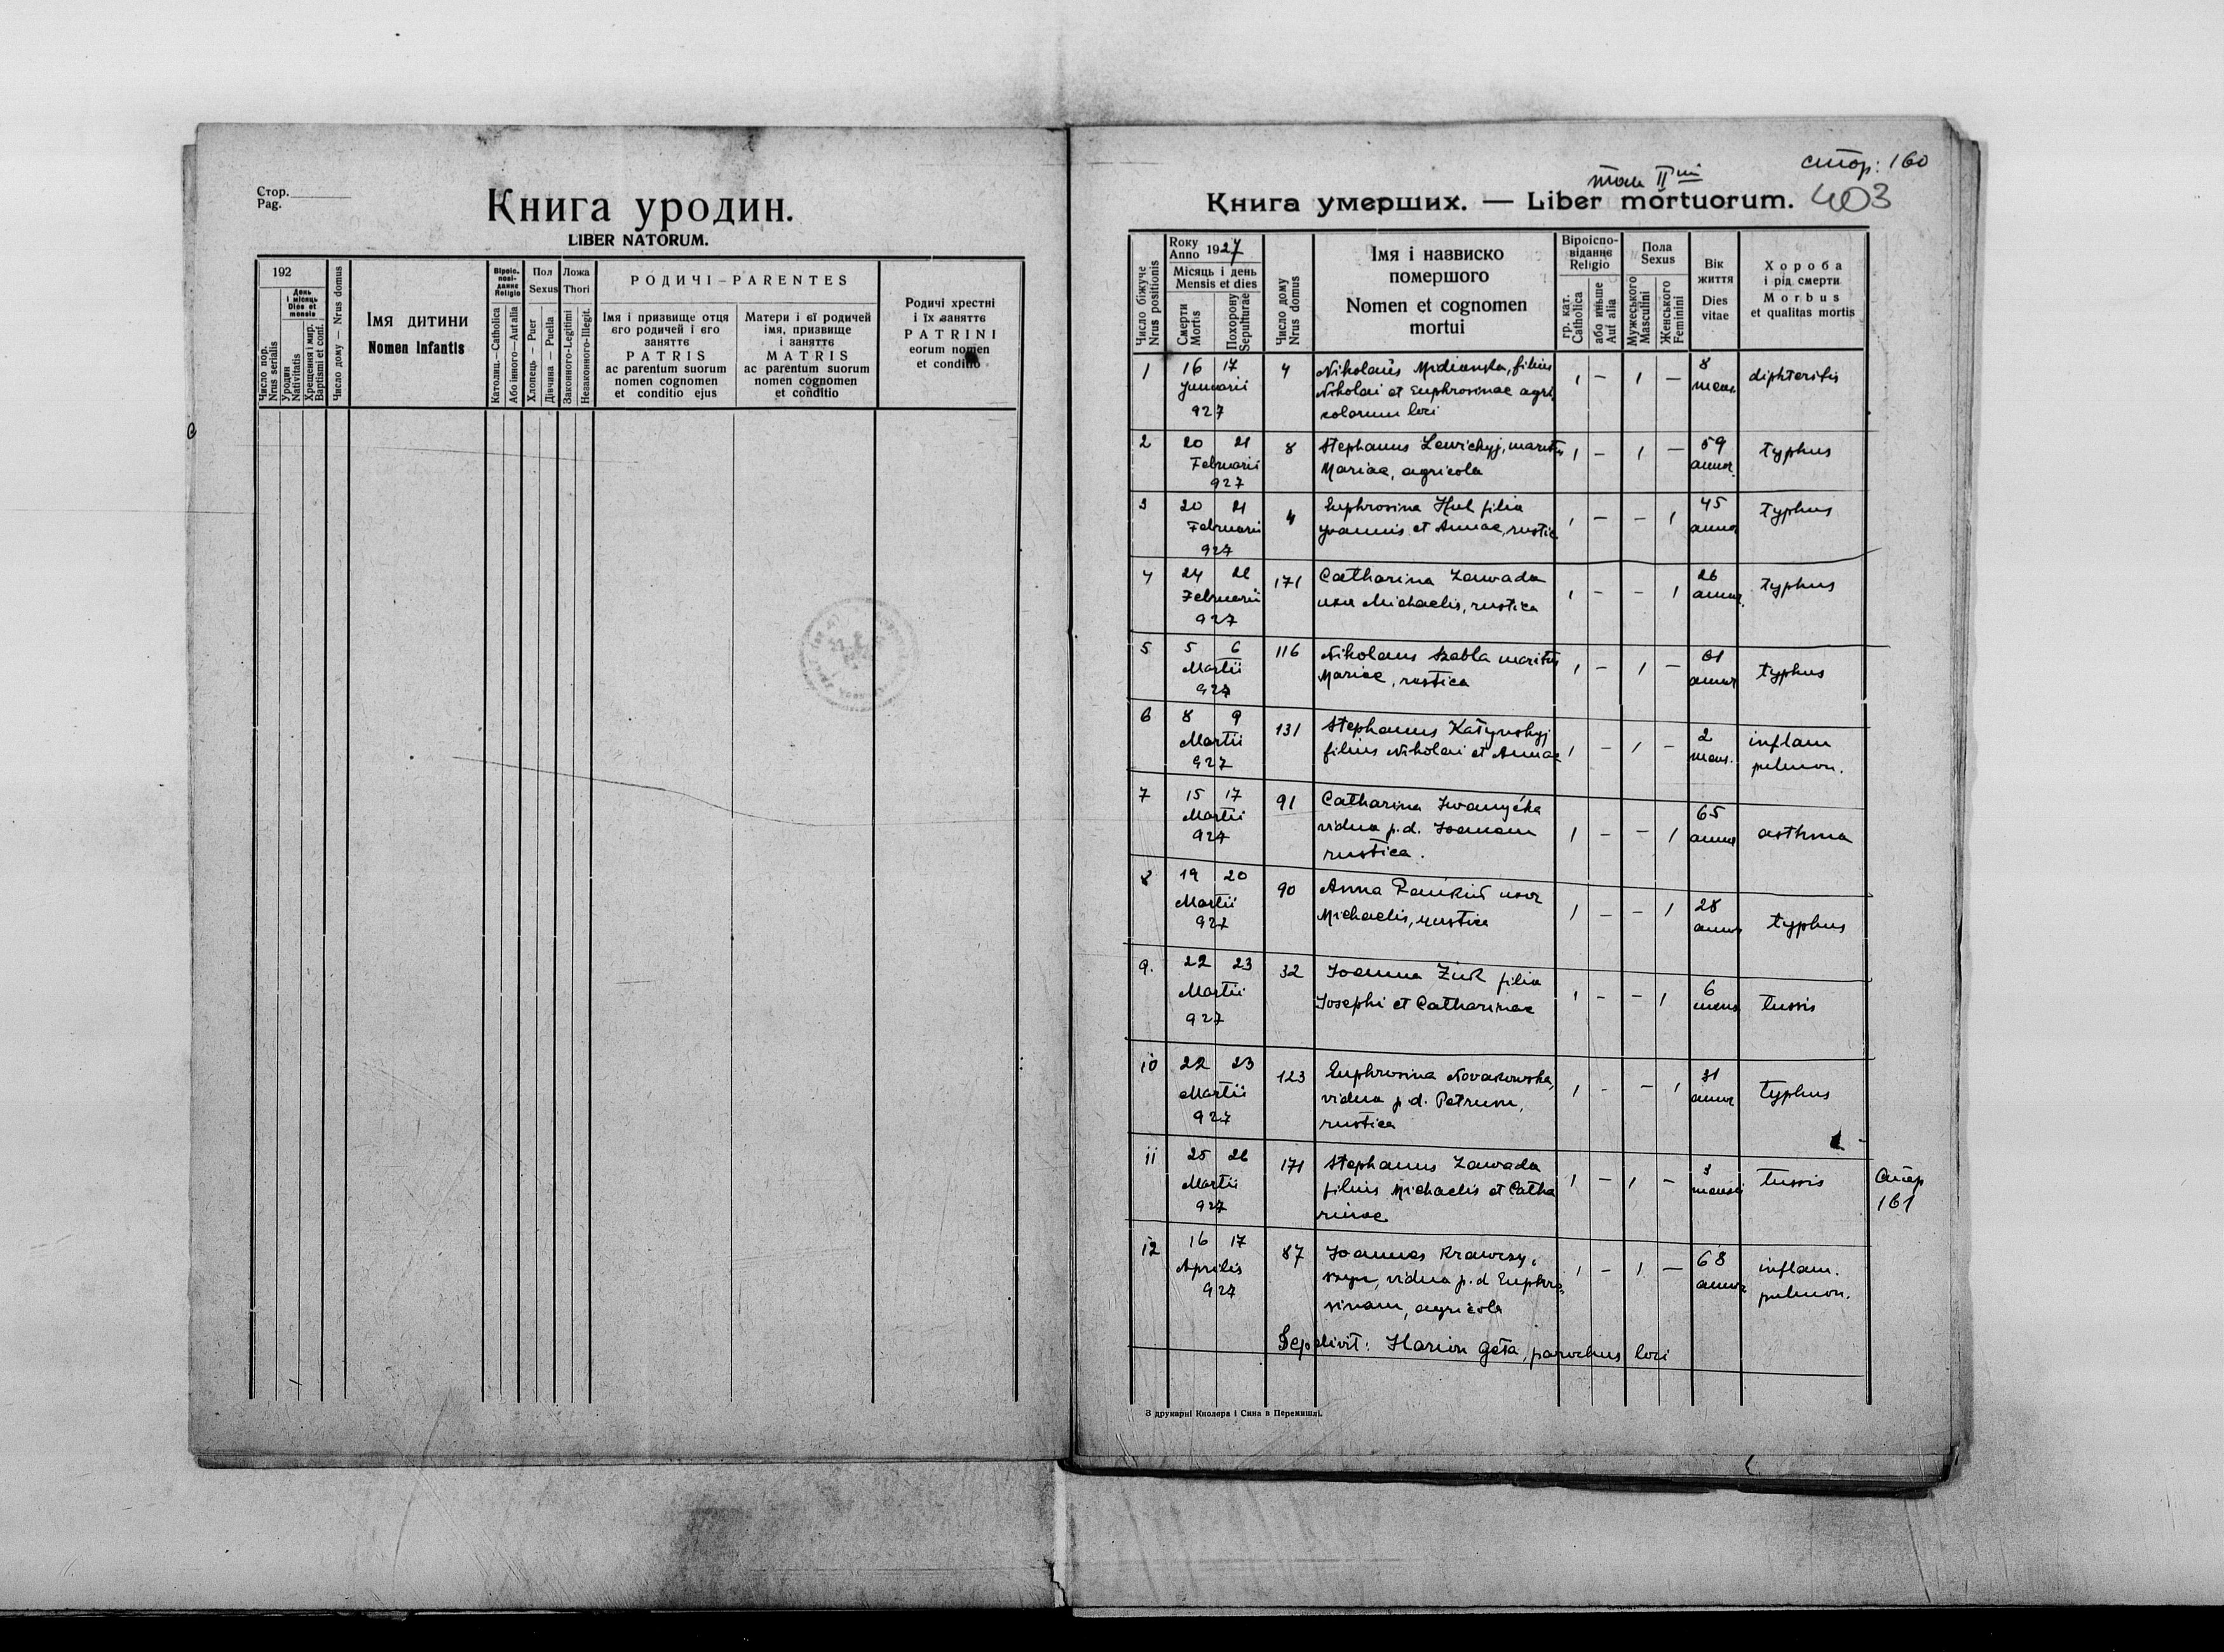 Стор.
Pag.
Книга уродин.
LIBER NATORUM.
192
День і місяць Dies et mensis
Число пор. Nrus serialis
Уродин Nativitatis
Хрещення і мир. Baptismi et conf.
Число дому — Nrus domus
Імя дитини
Nomen infantis
Віроіс-повіданнє Religio
Католиц.—Catholica
Або інного—Aut alia
Пол
Sexus
Хлопець — Puer
Дівчина — Puella
Ложа
Thori
Законного-Legitimi
Незаконного-Illegit.
РОДИЧІ – PARENTES
Імя і призвище отця
єго родичей і єго
заняттє
PATRIS
ac parentum suorum
nomen cognomen
et conditio ejus
Матери і єї родичей
імя, призвище
і заняттє
MATRIS
ac parentum suorum
nomen cognomen
et conditio
Родичі хрестні
і їх заняттє
PATRINI
eorum nomen
et conditio
стор: 160
том II
403
Книга умерших. — Liber mortuorum.
Число біжуче
Nrus positionis
Року
Anno 1927
Місяць і день
Mensis et dies
Смерти
Mortis
Похорону
Sepulturae
Число дому
Nrus domus
Імя і назвиско
помершого
Nomen et cognomen
mortui
Віроіспо-
віданнє
Religio
гр. кат.
Catholica
або иньше
Aut alia
Пола
Sexus
Мужеського
Masculini
Женського
Feminini
Вік
життя
Dies
vitae
Хороба
і рід смерти
Morbus
et qualitas mortis
1 16 17 4 Nikolaus filius 1 — 1 — 8 diphteritis
Januarii Nikolai et Euphrosinae agri- mens.
927 colarum loci
2 20 21 8 Stephanus Lewickyj, maritus 1 — 1 — 59 typhus
Februarii Mariae, agricola annor.
927
3 20 21 4 Euphrosina Hul filia 1 — — 1 45 typhus
Februarii Joannis et Annae, rustica annor
927
4 24 171 Catharina Zawada 1 — — 1 26 typhus
Februarii uxor Michaelis, rustica annor.
927
5 5 6 116 Nikolaus maritus 1 — 1 — 61 typhus
Martii Mariae, rustica annor
927
6 8 9 131 Stephanus Katynskyj 1 — 1 — 2 inflam
Martii filius Nikolai et Annae mens. pulmon.
927
7 15 17 91 Catharina Iwanyćka 1 — — 1 65 asthma
Martii vidua p.d. Joanem annor
927 rustica.
8 19 20 90 Anna uxor 1 — — 1 28 typhus
Martii Michaelis, rustica annor
927
9. 22 23 32 Joanna Żuk filia 1 — — 1 6 tussis
Martii Josephi et Catharinae mens
927
10 22 23 123 Euphrosina Novakowska, 1 — — 1 31 typhus
Martii vidua p.d. Petrum, annor
927 rustica
11 25 26 171 Stephanus Zawada 1 — 1 — 3 tussis
Martii filius Michaelis et Catha mensis
927 rinae
стор
161
12 16 17 87 Joannes 1 — 1 — 68 inflam.
Aprilis vidua p.d Euphro- annor pulmon.
927 sinam, agricola
Sepelivit: Ilarion Geta, parochus loci
З друкарні Кнолєра і Сина в Перемишлі.